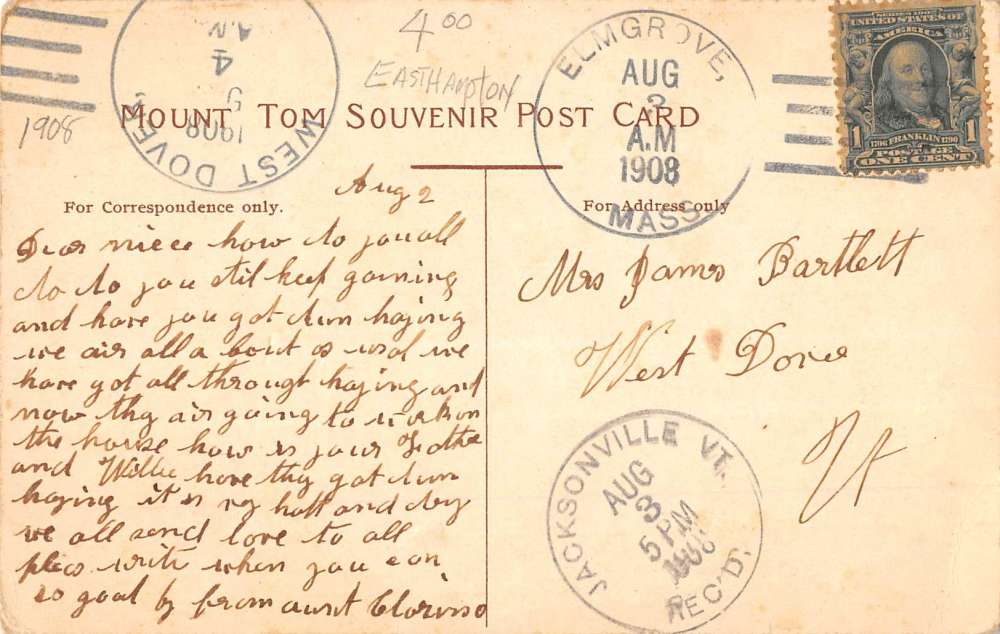 4 00
EASTHAMPTON
1908
WEST DOVER
4
A.M
5
1908
ELMGROVE,
AUG
3
A.M
1908
MASS.
SERIES 1902
UNITED STATES OF
AMERICA
1 1706 FRANKLIN 1790 1
POSTAGE
ONE CENT
MOUNT TOM SOUVENIR POST CARD
For Correspondence only.
For Address only
Aug 2
Dear niece how do you all
do do you stil keep gaining
and have you got dun haying
we air all a bout as usal we
have got all through haying and
now thy air going to work on
the house how is your Fothe
and Willie have thy got dun
haying it is ry hott and dry
we all send love to all
pleas write when you can
so goal by from aunt Clarinso
Mrs James Bartlett
West Dove
Vt
JACKSONVILLE VT.
AUG
3
5 PM
1908
REC'D.